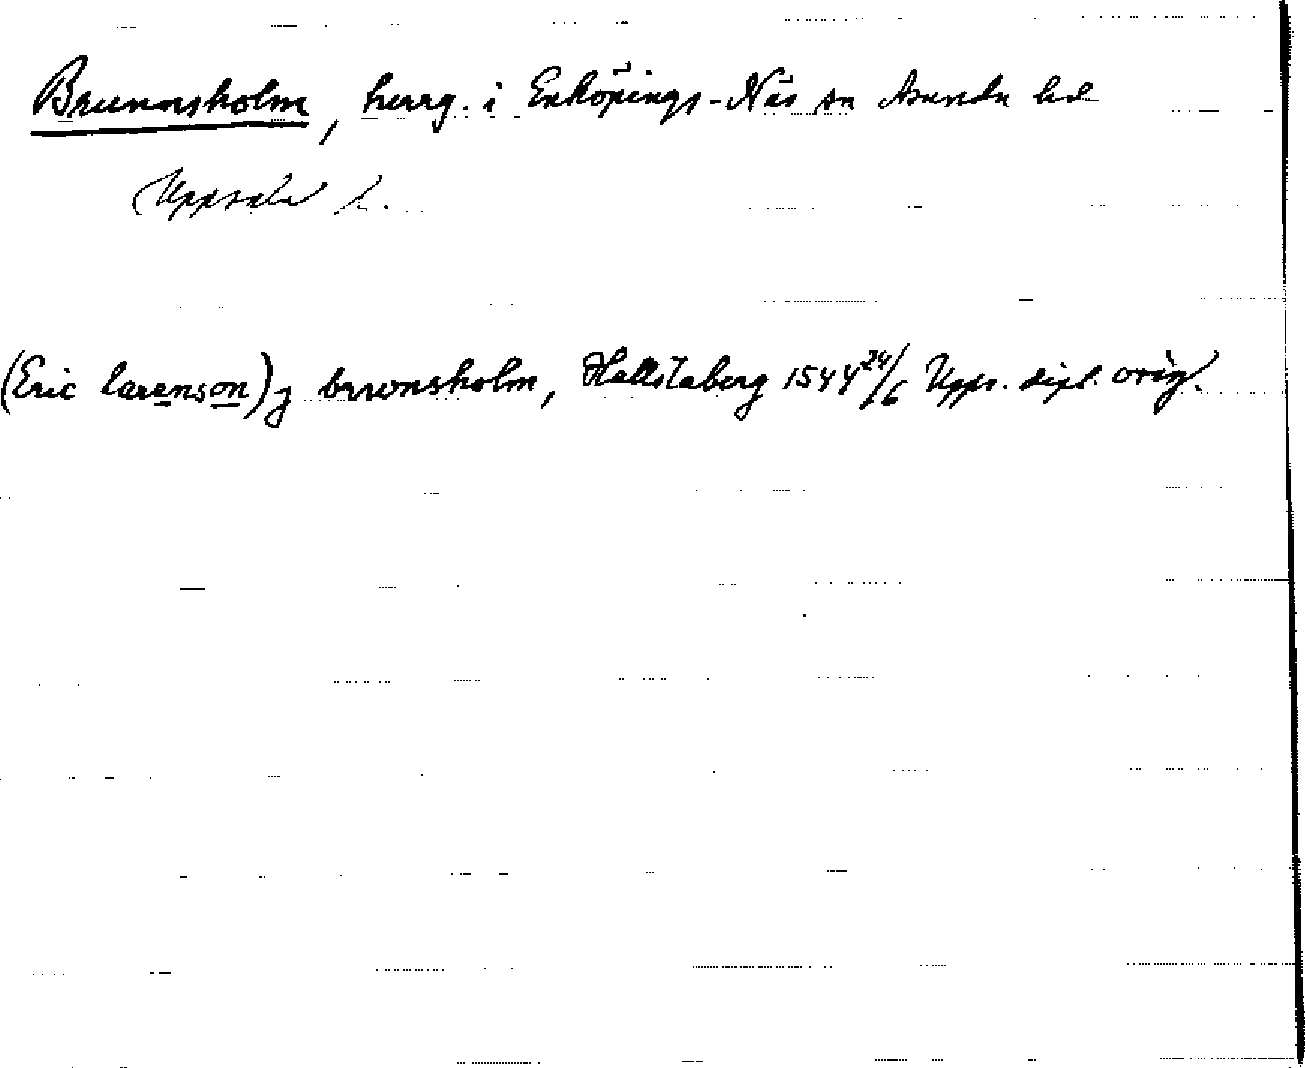 Brunnsholm, herrg. i Enköpings-Näs sn Åsunda hd
Uppsala l.
(Eric larenson) j brwonsholm, Hallstaberg 1544 24/6 Upps. dipl. orig.